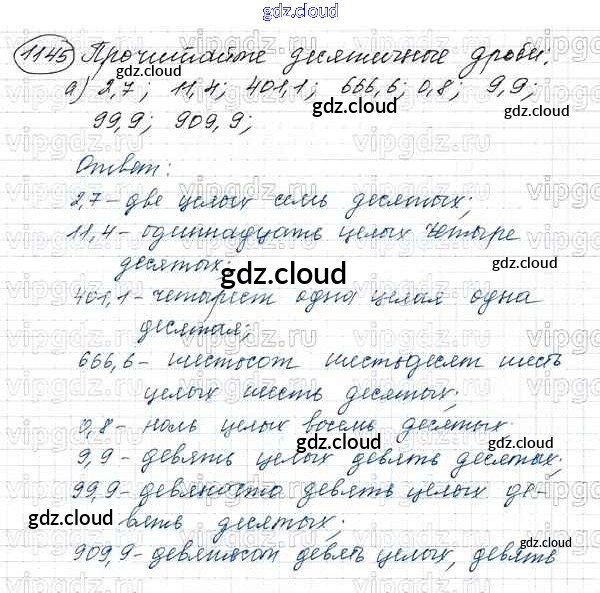 gdz.cloud
1145 Прочитайте десятичные дроби:
а) 2,7; 11,4; 401,1; 666,6; 0,8; 9,9;
99,9; 909,9;
Ответ:
2,7 - две целых семь десятых;
11,4 - одиннадцать целых четыре
десятых;
401,1 - четырест одна целая одна
десятая;
666,6 - шестьсот шестьдесят шесть
целых шесть десятых;
0,8 - ноль целых восемь десятых
9,9 - девять целых девять десятых;
99,9 - девяноста девять целых де-
вять десятых;
909,9 - девятьсот девять целых, девять
gdz.cloud
gdz.cloud
gdz.cloud
gdz.cloud
gdz.cloud
gdz.cloud
gdz.cloud
gdz.cloud
gdz.cloud
gdz.cloud